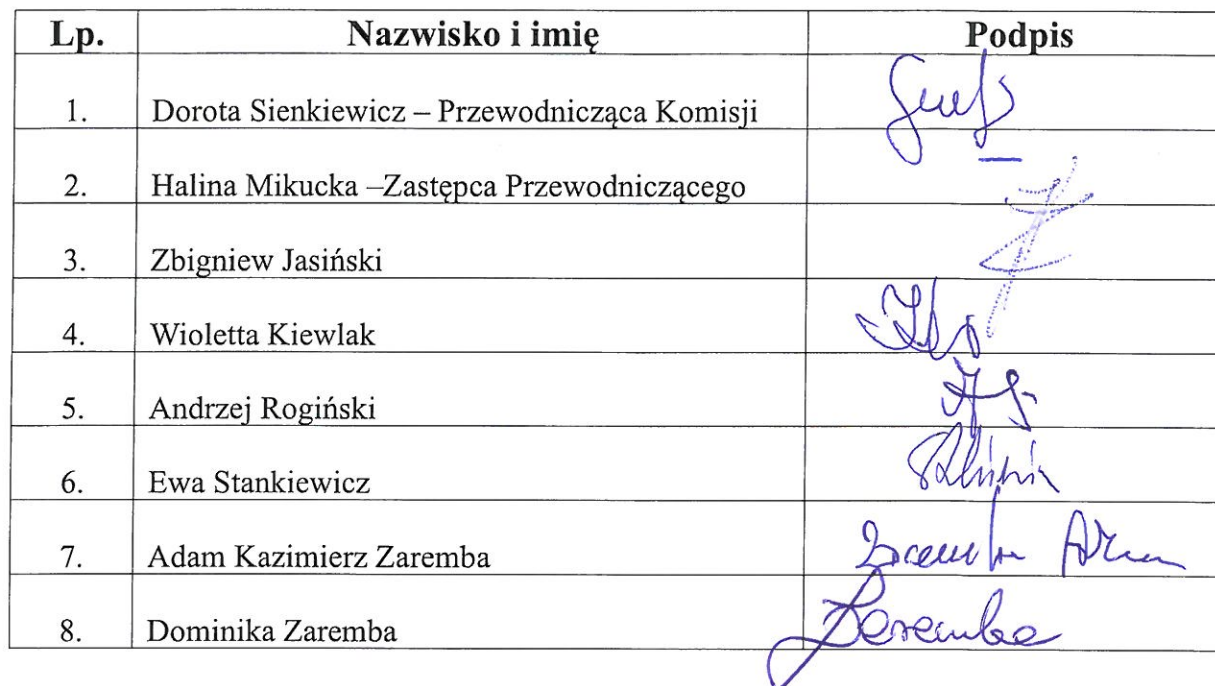 Lp. Nazwisko i imię Podpis
1. Dorota Sienkiewicz – Przewodnicząca Komisji
2. Halina Mikucka –Zastępca Przewodniczącego
3. Zbigniew Jasiński
4. Wioletta Kiewlak
5. Andrzej Rogiński
6. Ewa Stankiewicz
7. Adam Kazimierz Zaremba
8. Dominika Zaremba Zaremba